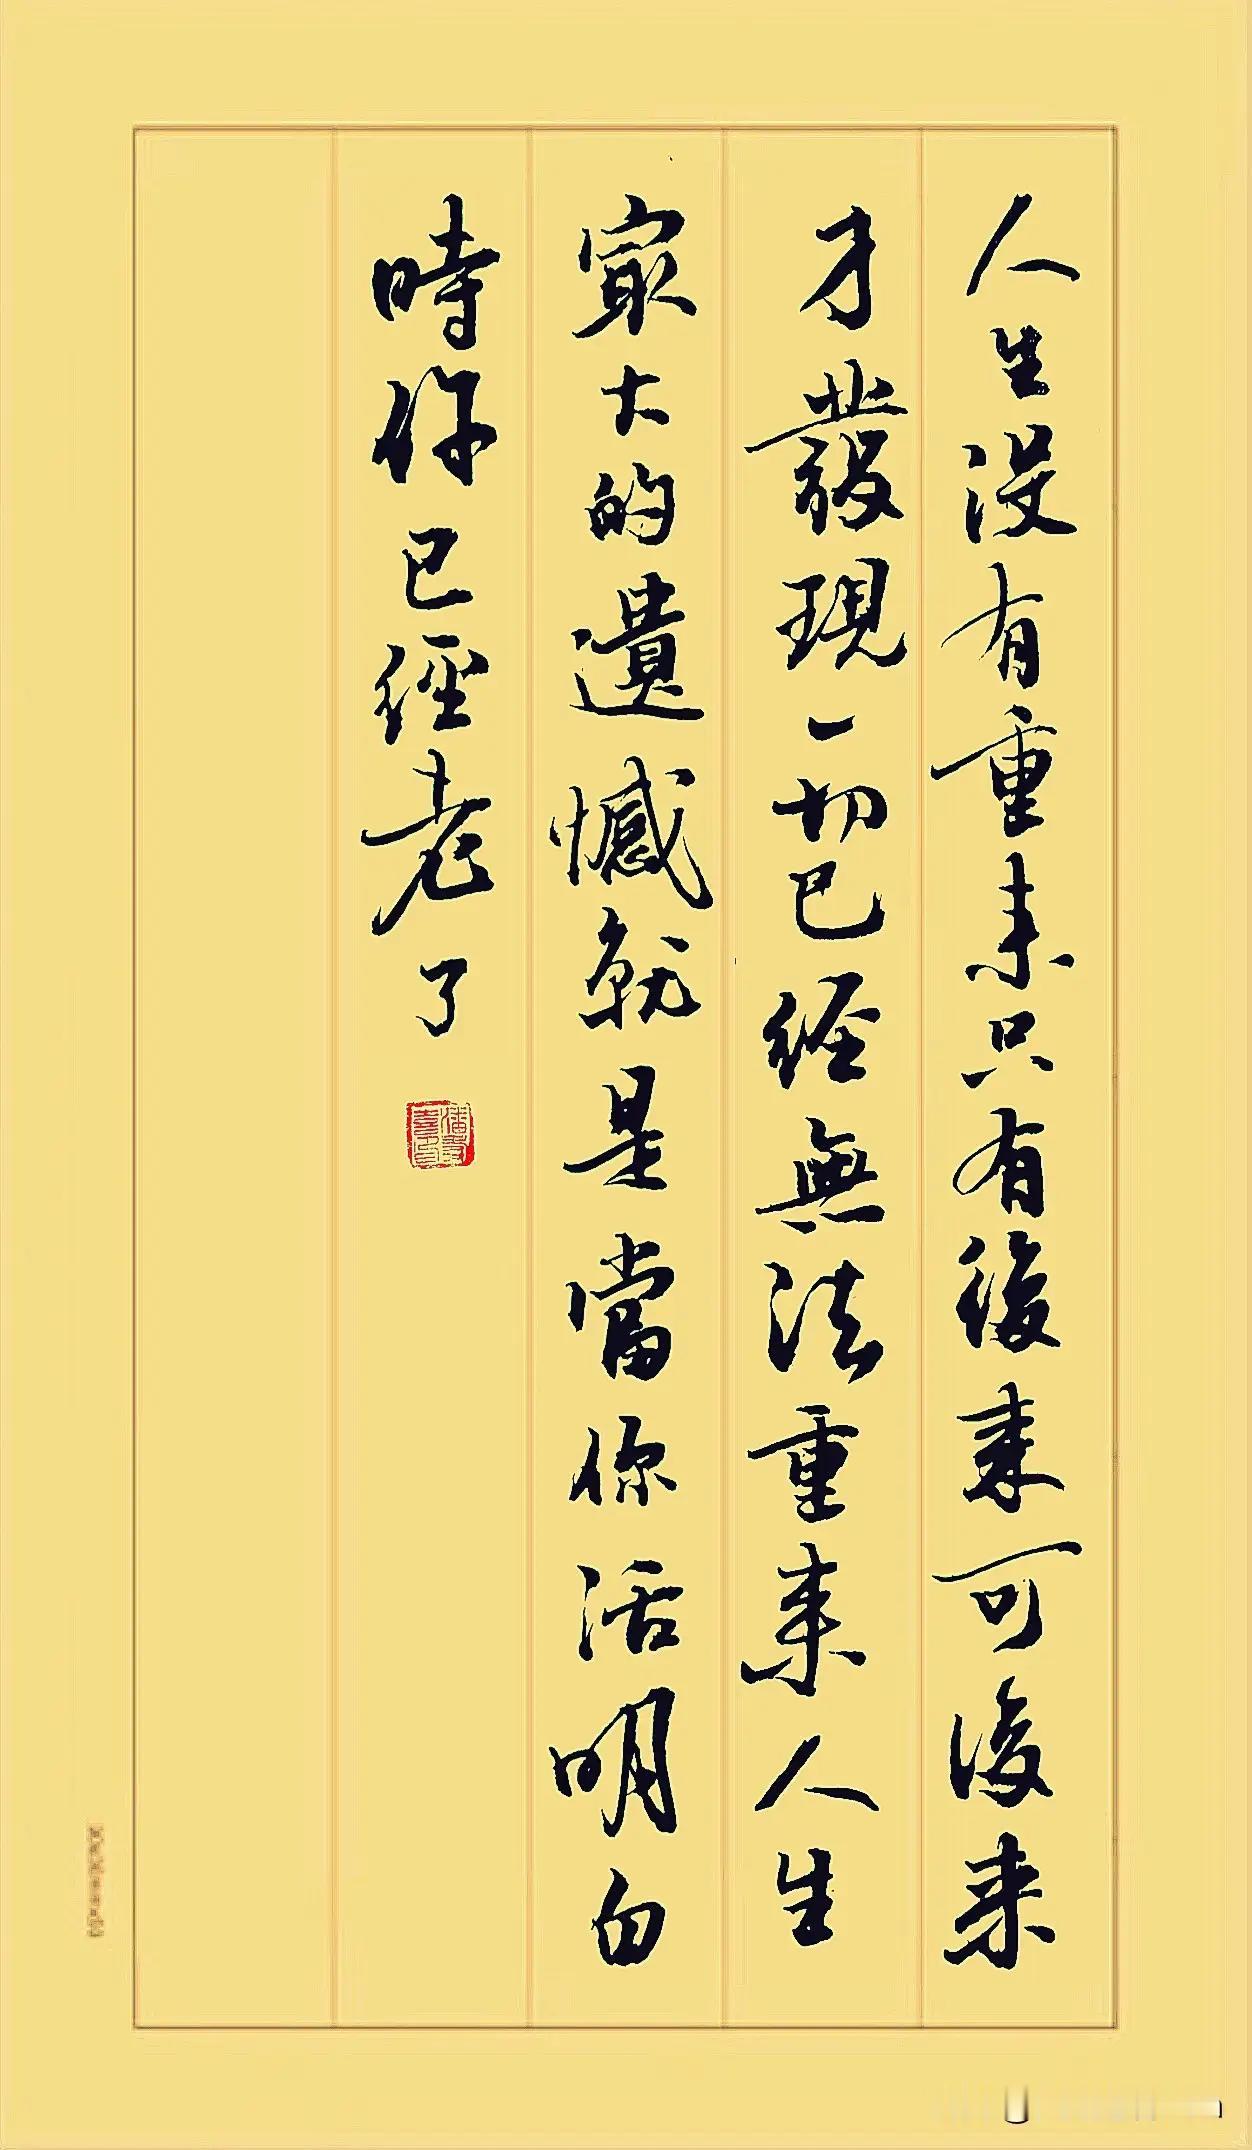 人生没有重来只有後来可後来
才發現一切已经無法重来人生
最大的遺憾就是當你活明白
時你已經老了